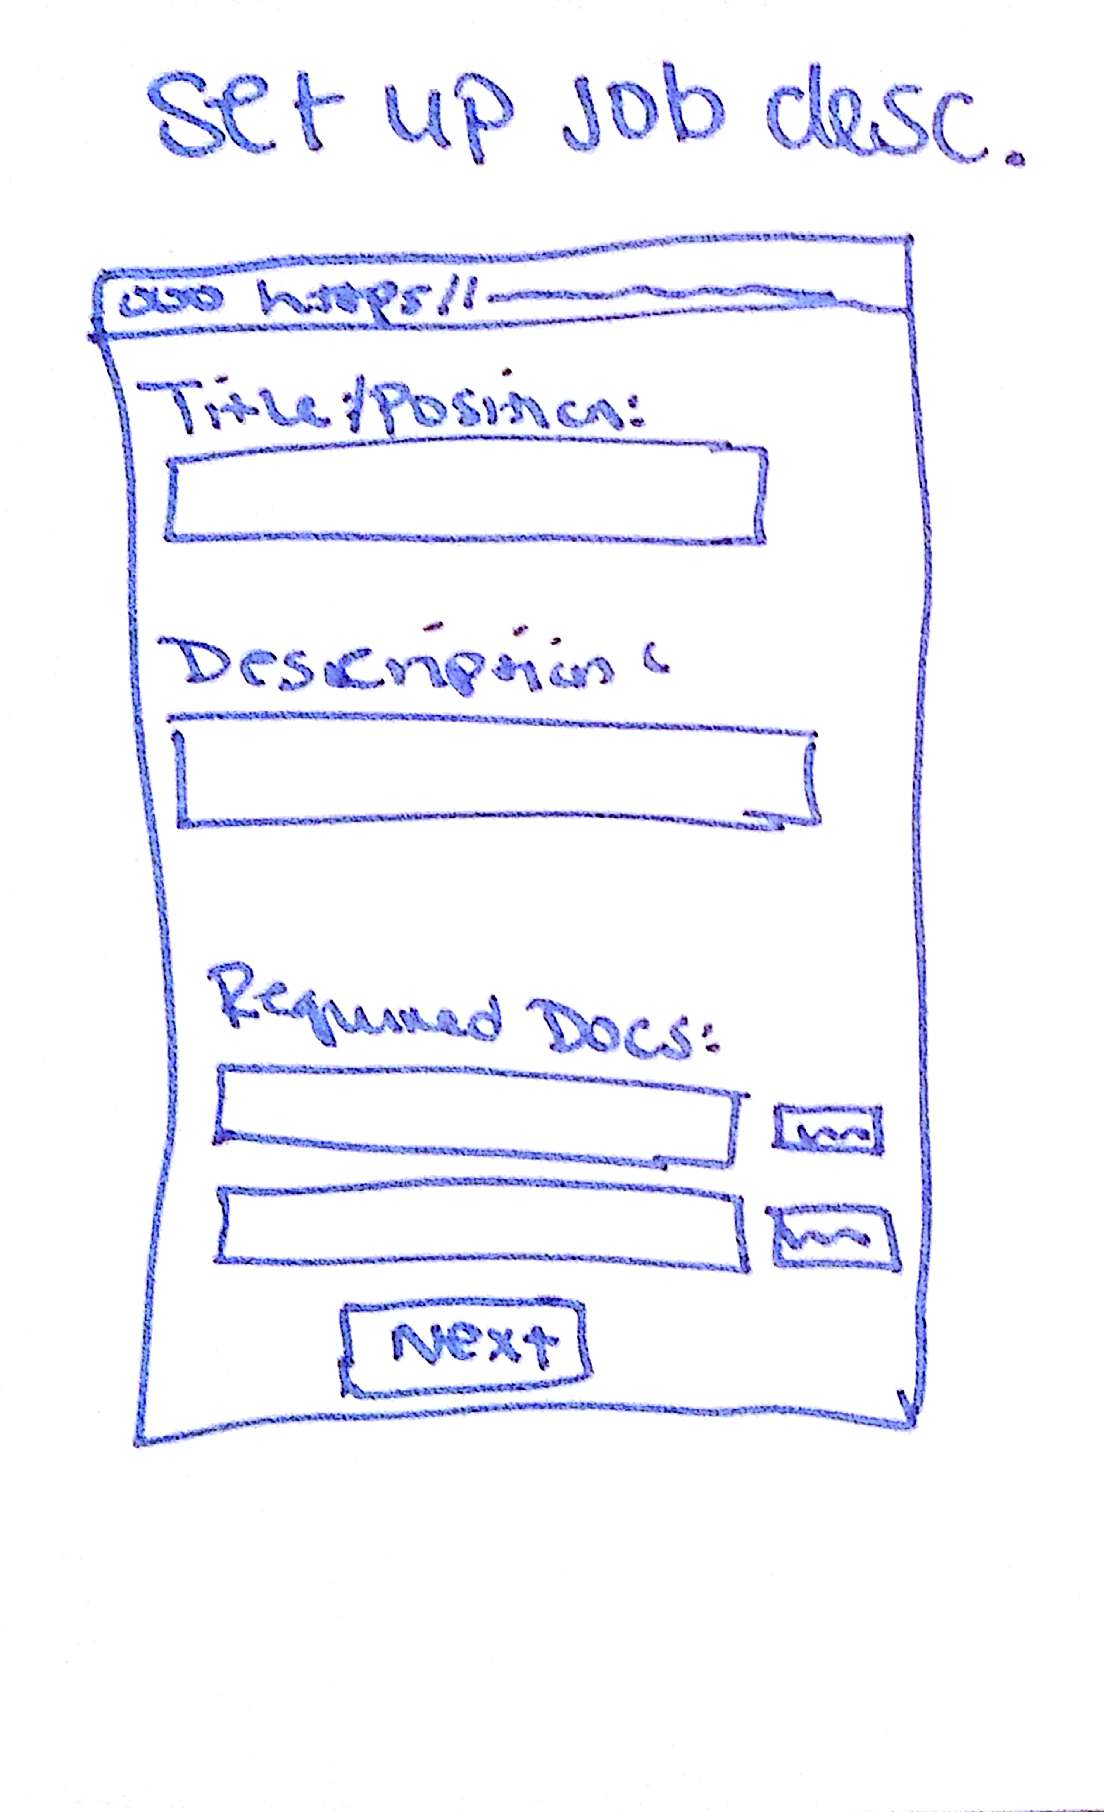 Set up Job desc.
https//
Title/Position:
Description:
Required Docs:
Next